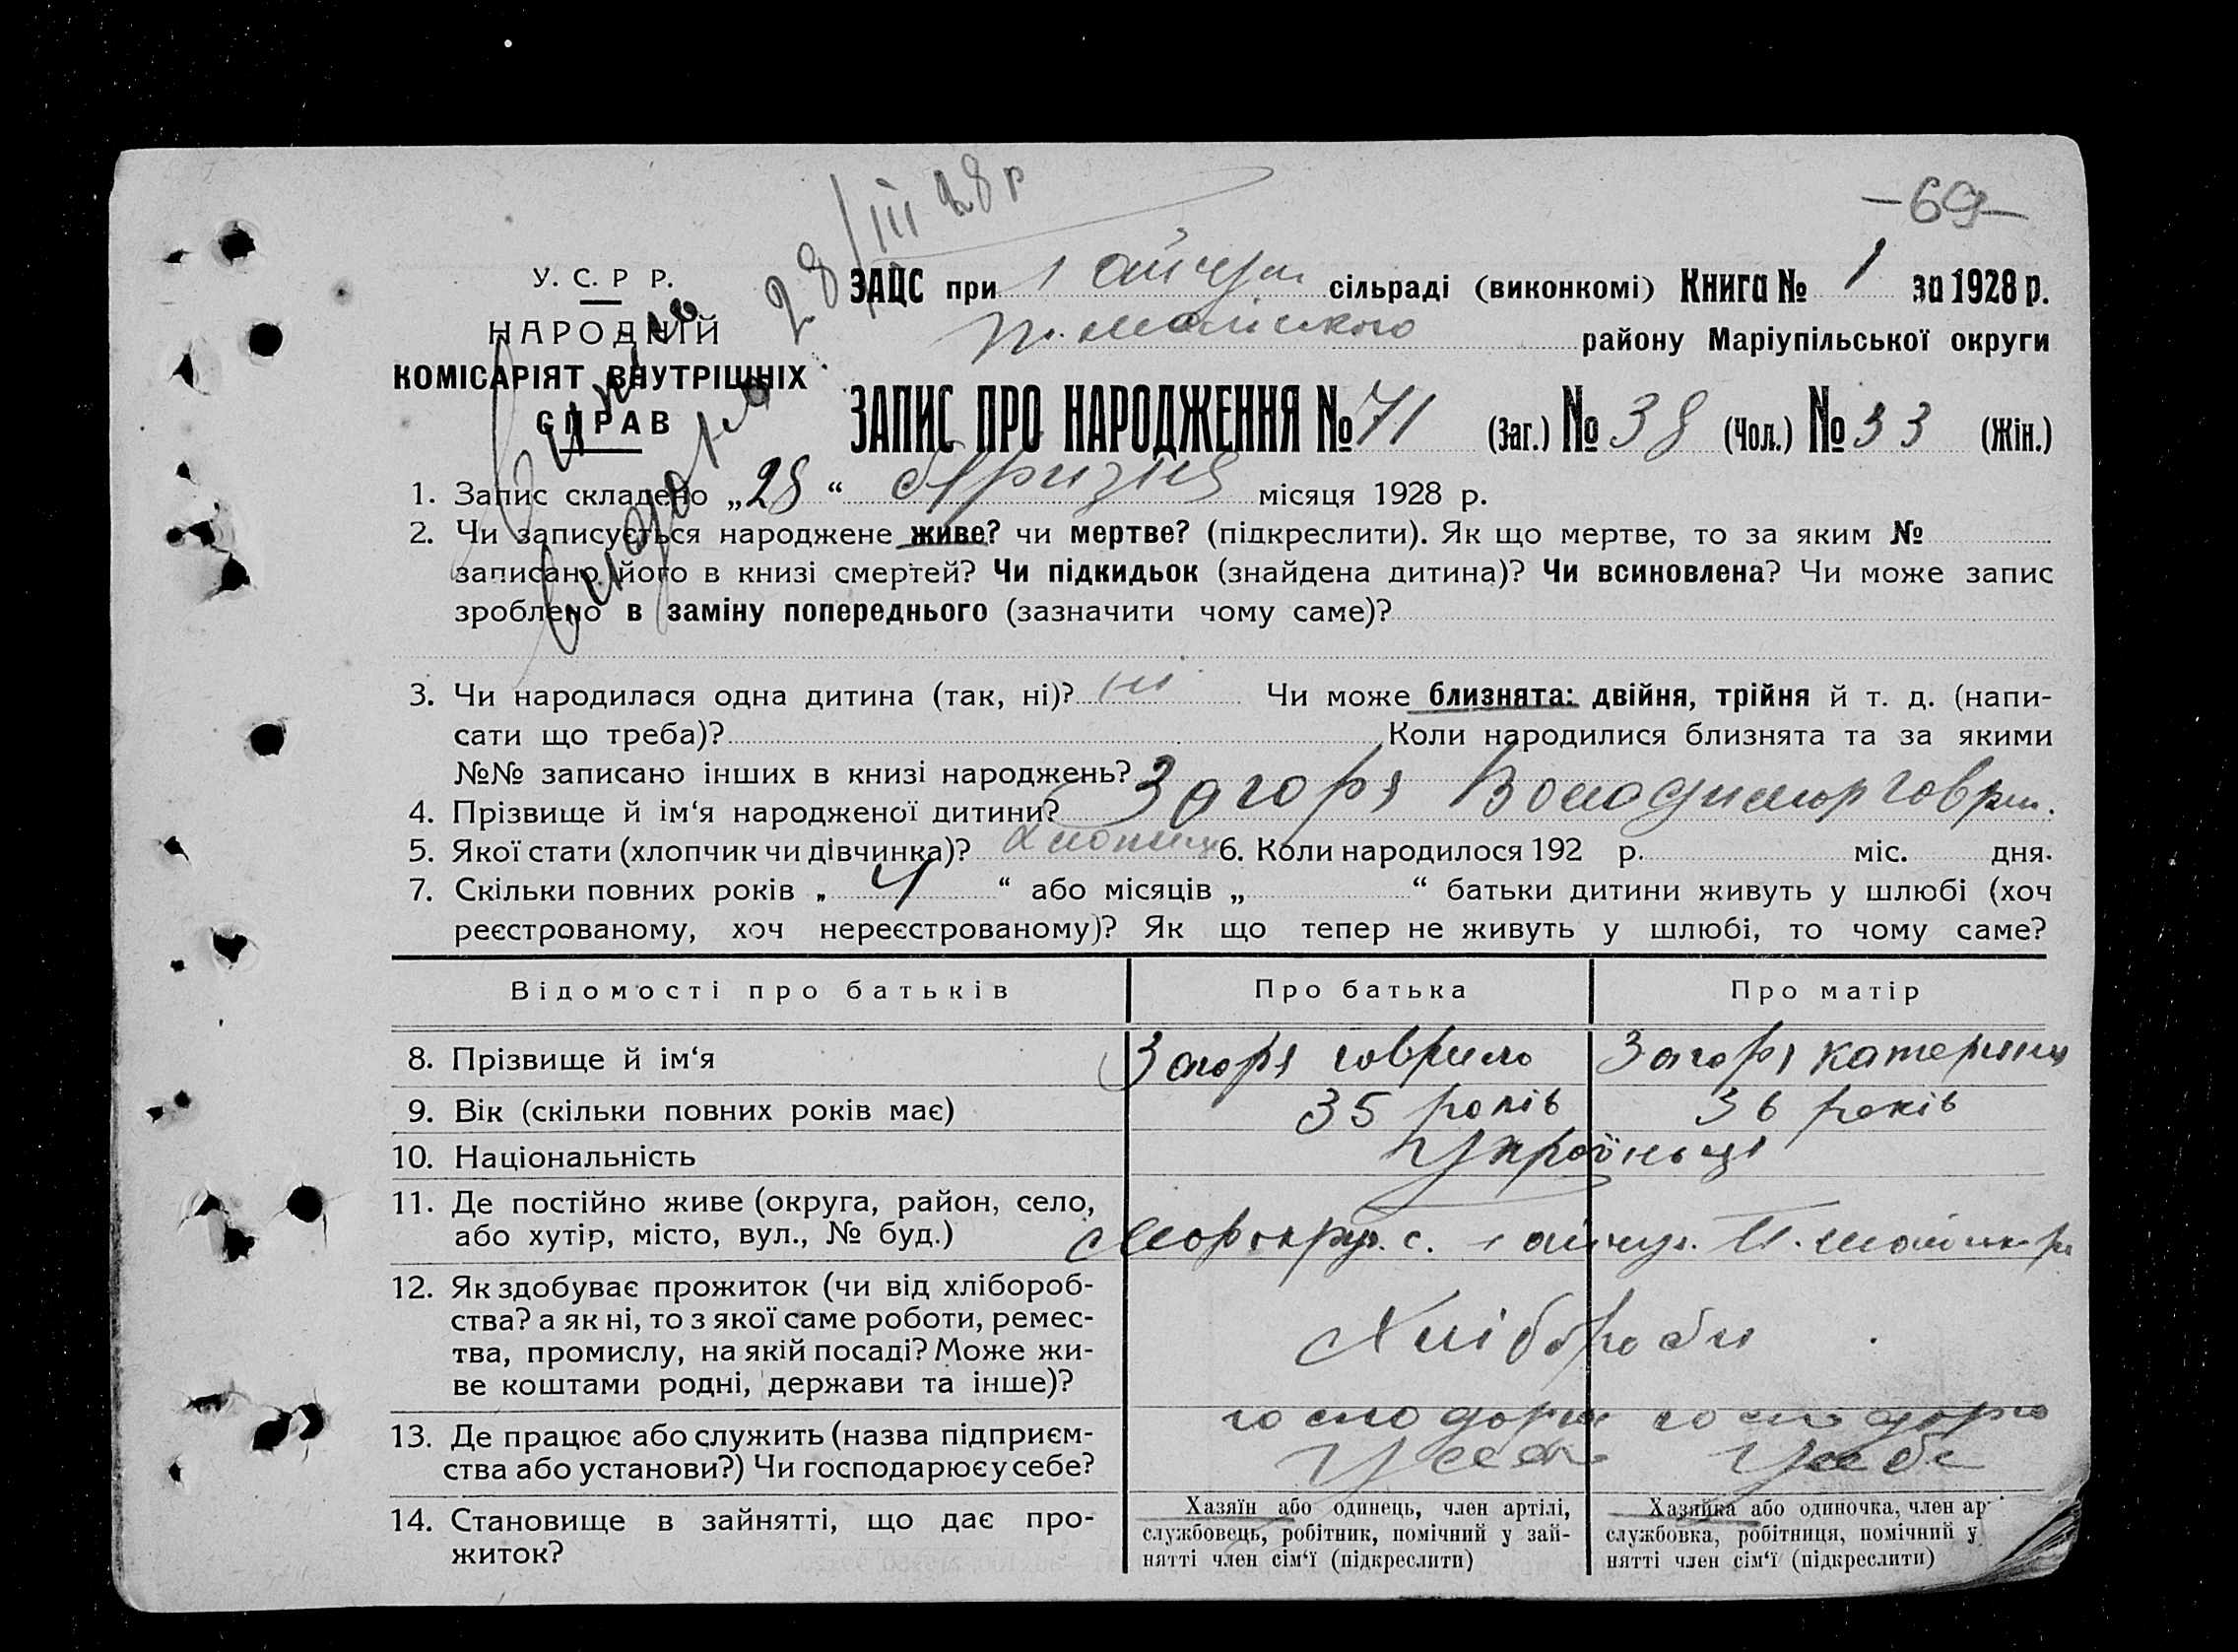 28/III 28 р
-69-
У. С. Р Р.
НАРОДНІЙ
КОМІСАРІЯТ ВНУТРІШНІХ
СПРАВ
ЗАЦС при Гайчул сільраді (виконкомі) Книга № 1 за 1928 р.
району Маріупільської округи
ЗАПИС ПРО НАРОДЖЕННЯ № 71 (Заг.) № 38 (Чол.) № 33 (Жін.)
1. Запис складено „28“ березня місяця 1928 р.
2. Чи записується народжене живе? чи мертве? (підкреслити). Як що мертве, то за яким №
записано його в книзі смертей? Чи підкидьок (знайдена дитина)? Чи всиновлена? Чи може запис
зроблено в заміну попереднього (зазначити чому саме)?
3. Чи народилася одна дитина (так, ні)? ні Чи може близнята: двійня, трійня й т. д. (напи-
сати що треба)? Коли народилися близнята та за якими
№№ записано інших в книзі народжень?
4. Прізвище й ім‘я народженої дитини? Загоря Володимир Говрил.
5. Якої стати (хлопчик чи дівчинка)? хлопиць 6. Коли народилося 192 р. міс. дня.
7. Скільки повних років „ 4 “ або місяців „ “ батьки дитини живуть у шлюбі (хоч
реєстрованому, хоч нереєстрованому)? Як що тепер не живуть у шлюбі, то чому саме?
Відомості про батьків Про батька Про матір
8. Прізвище й ім‘я Загоря Говрило Загоря Катерина
9. Вік (скільки повних років має) 35 років 36 років
10. Національність Україньці
11. Де постійно живе (округа, район, село,
або хутір, місто, вул., № буд.) с. Гайчул.
12. Як здобуває прожиток (чи від хлібороб-
ства? а як ні, то з якої саме роботи, ремес-
тва, промислу, на якій посаді? Може жи-
ве коштами родні, держави та інше)?
Хлібороби
13. Де працює або служить (назва підприєм-
ства або установи?) Чи господарює у себе?
господорює господорює
у себе у себе
14. Становище в зайнятті, що дає про-
житок?
Хазяїн або одинець, член артілі,
службовець, робітник, помічний у зай-
нятті член сім‘ї (підкреслити)
Хазяйка або одиночка, член ар
службовка, робітниця, помічний у
нятті член сім‘ї (підкреслити)